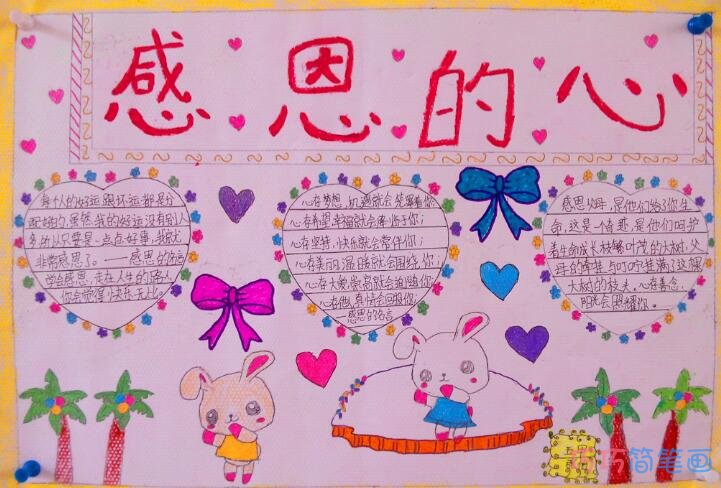 感恩的心
每个人的好运跟坏运都是分
配好的,虽然我的好运没有别人
多所以只要是一点点好事,我就
非常感恩了。——感恩的名言
学会感恩,走在人生的路上
你会觉得快乐无比。
心存梦想,机遇就会笼罩着你;
心存希望,幸福就会降临于你;
心存坚持,快乐就会常伴你;
心存美丽,温暖就会围绕你;
心存大爱,崇高就会追随你
心存他,真情会回报你。
——感恩的名言
感恩父母,是他们给了你生
命,这是一奇迹,是他们呵护
着生命成长枝繁叶茂的大树,父
母的牵挂与叮咛挂满了这棵
大树的枝头。心存善念,
阳光会照耀你。
巧巧简笔画